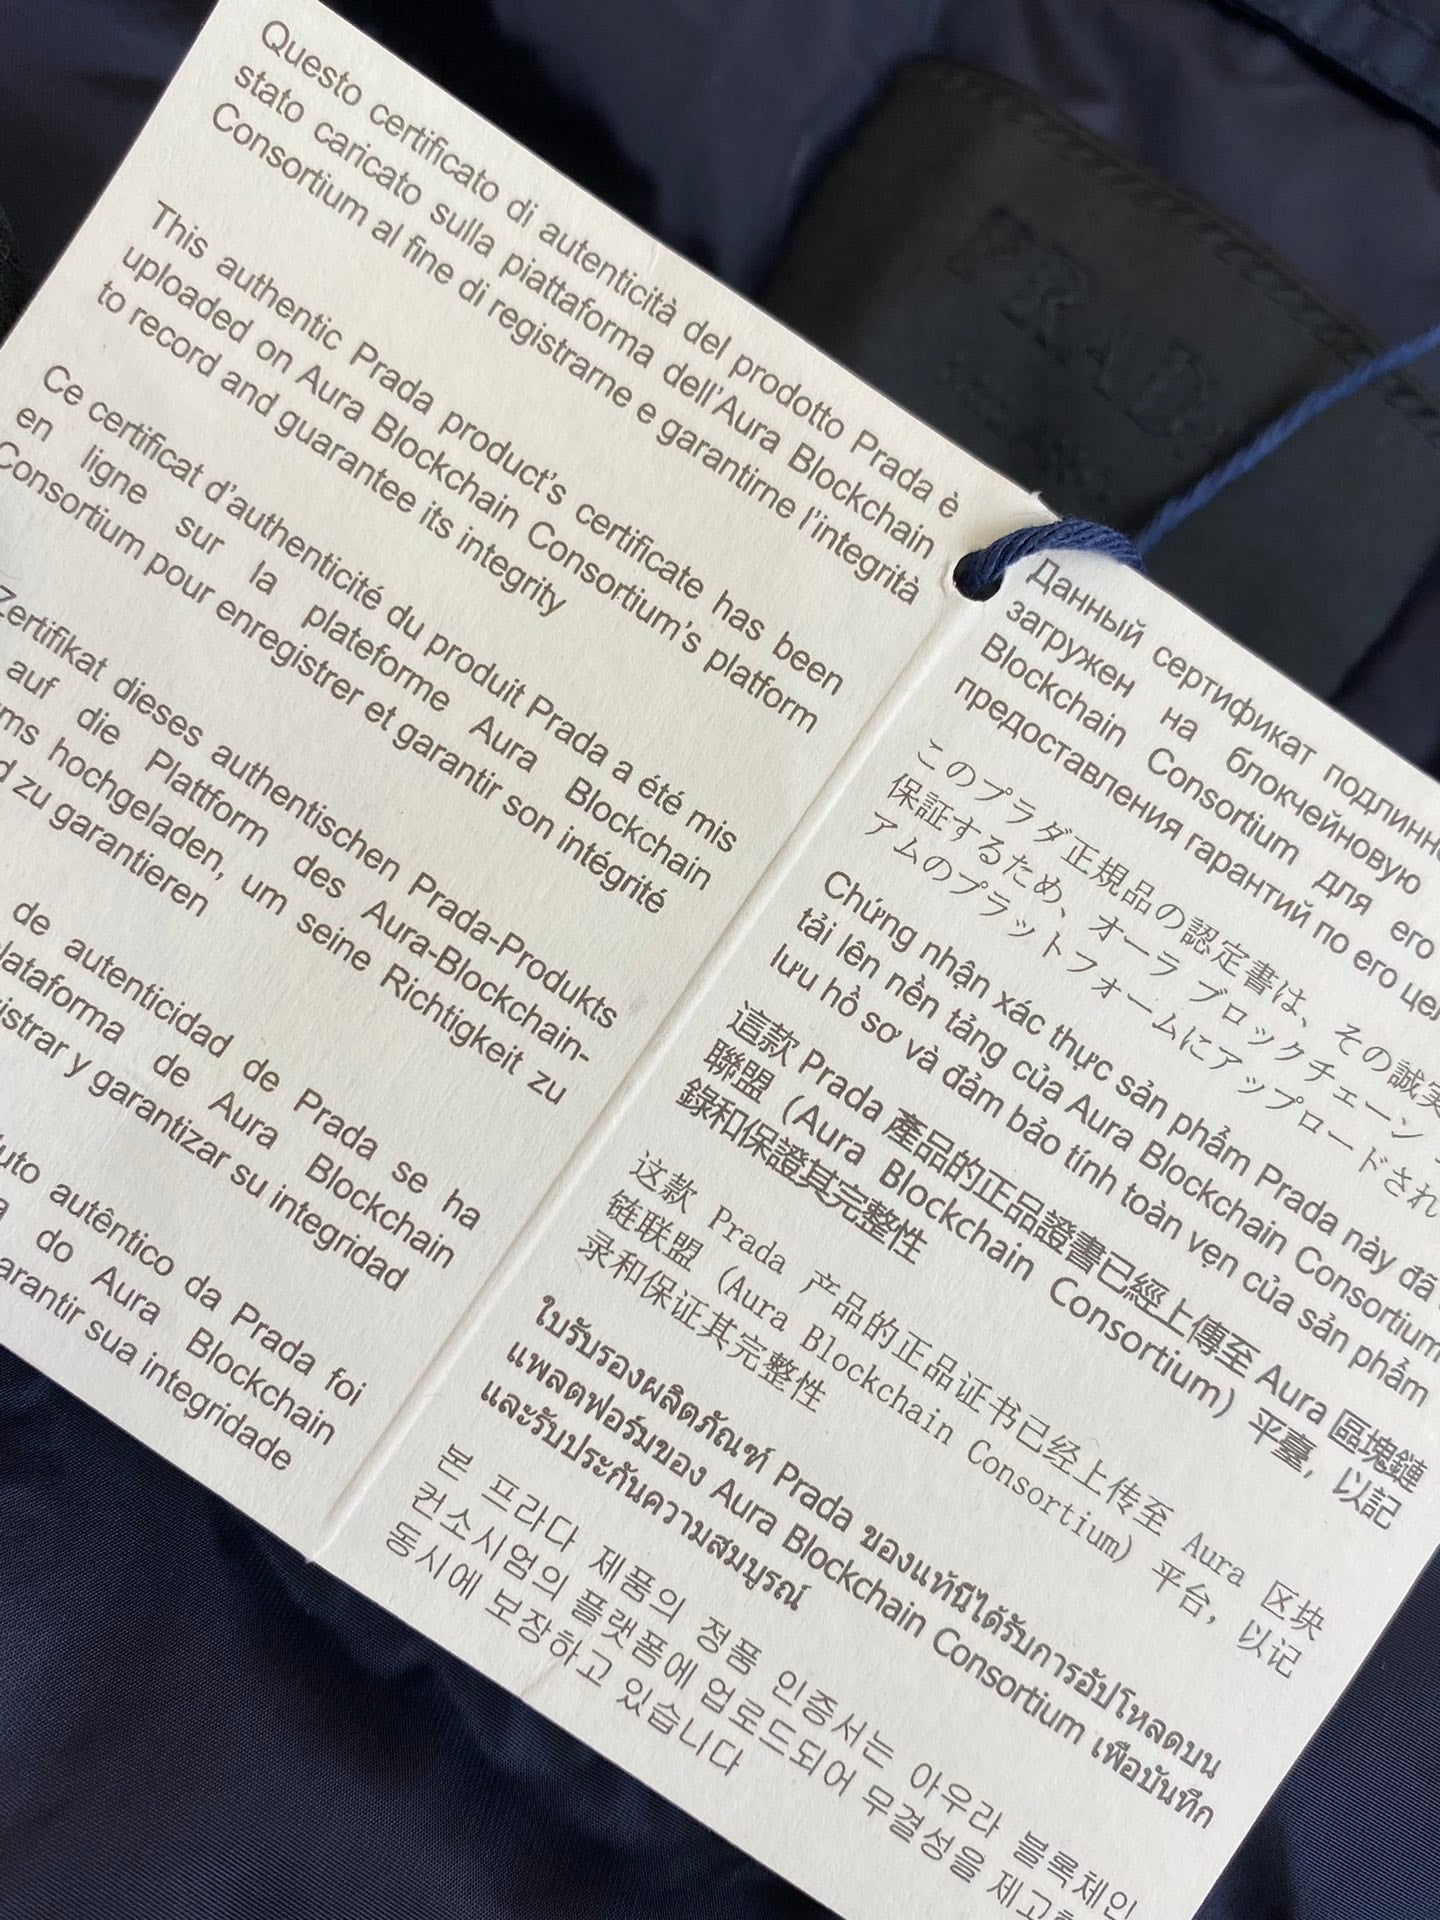 Questo certificato di autenticità del prodotto Prada è
stato caricato sulla piattaforma dell'Aura Blockchain
Consortium al fine di registrarne e garantirne l'integrità
This authentic Prada product's certificate has been
uploaded on Aura Blockchain Consortium's platform
to record and guarantee its integrity
Ce certificat d'authenticité du produit Prada a été mis
en ligne sur la plateforme Aura Blockchain
Consortium pour enregistrer et garantir son intégrité
Zertifikat dieses authentischen Prada-Produkts
auf die Plattform des Aura-Blockchain-
ms hochgeladen, um seine Richtigkeit zu
d zu garantieren
de autenticidad de Prada se ha
lataforma de Aura Blockchain
istrar y garantizar su integridad
uto autêntico da Prada foi
a do Aura Blockchain
arantir sua integridade
Данный сертификат подлинно
загружен на блокчейновую
Blockchain Consortium для его
предоставления гарантий по его цел
このプラダ正規品の認定書は、その誠実
保証するため、オーラ ブロックチェーン
アムのプラットフォームにアップロードされ
Chứng nhận xác thực sản phẩm Prada này đã
tải lên nền tảng của Aura Blockchain Consortium
lưu hồ sơ và đảm bảo tính toàn vẹn của sản phẩm
這款 Prada 產品的正品證書已經上傳至 Aura 區塊鏈
聯盟（Aura Blockchain Consortium）平臺，以記
錄和保證其完整性
这款 Prada 产品的正品证书已经上传至 Aura 区块
链联盟（Aura Blockchain Consortium）平台，以记
录和保证其完整性
ใบรับรองผลิตภัณฑ์ Prada ของแท้นี้ได้รับการอัปโหลดบน
แพลตฟอร์มของ Aura Blockchain Consortium เพื่อบันทึก
และรับประกันความสมบูรณ์
본 프라다 제품의 정품 인증서는 아우라 블록체인
컨소시엄의 플랫폼에 업로드되어 무결성을 제고
동시에 보장하고 있습니다
PRAD